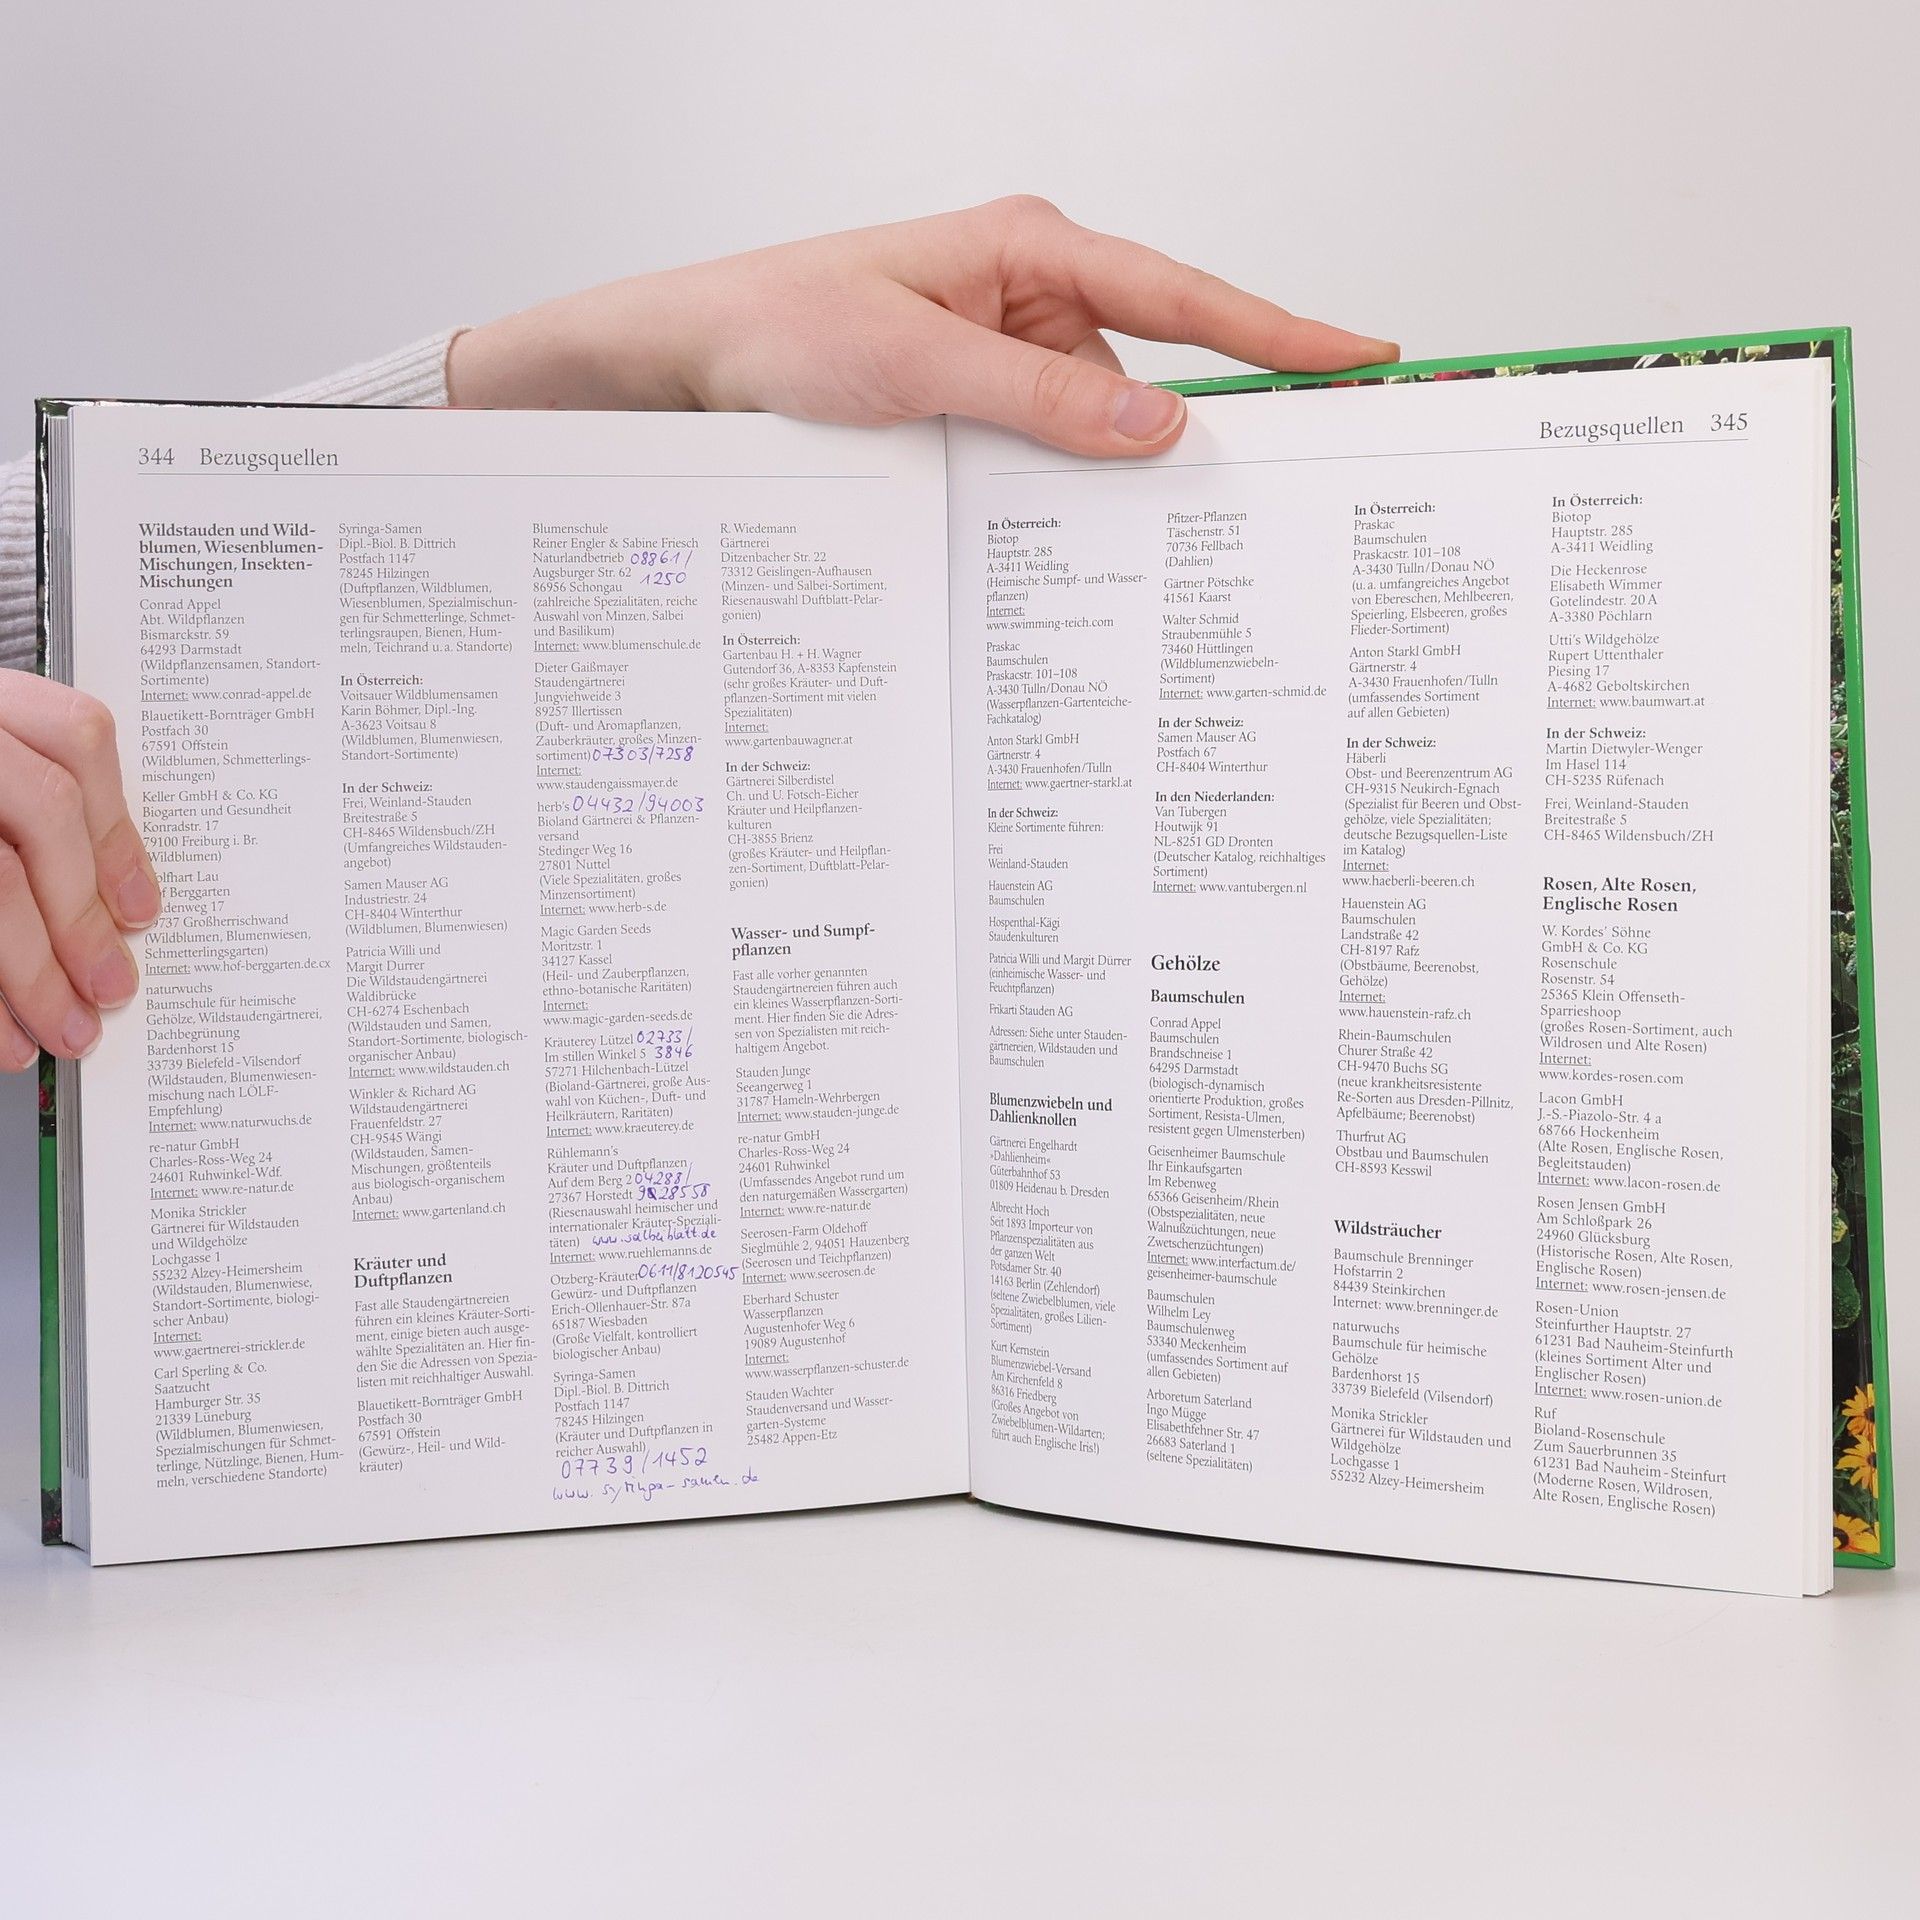 344 Bezugsquellen
Wildstauden und Wild-
blumen, Wiesenblumen-
Mischungen, Insekten-
Mischungen
Conrad Appel
Abt. Wildpflanzen
Bismarckstr. 59
64293 Darmstadt
(Wildpflanzensamen, Standort-
Sortimente)
Internet: www.conrad-appel.de
Blauetikett-Bornträger GmbH
Postfach 30
67591 Offstein
(Wildblumen, Schmetterlings-
mischungen)
Keller GmbH & Co. KG
Biogarten und Gesundheit
Konradstr. 17
79100 Freiburg i. Br.
Wildblumen)
olfhart Lau
of Berggarten
denweg 17
9737 Großherrischwand
(Wildblumen, Blumenwiesen,
Schmetterlingsgarten)
Internet: www.hof-berggarten.de.cx
naturwuchs
Baumschule für heimische
Gehölze, Wildstaudengärtnerei,
Dachbegrünung
Bardenhorst 15
33739 Bielefeld-Vilsendorf
(Wildstauden, Blumenwiesen-
mischung nach LÖLF-
Empfehlung)
Internet: www.naturwuchs.de
re-natur GmbH
Charles-Ross-Weg 24
24601 Ruhwinkel-Wdf.
Internet: www.re-natur.de
Monika Strickler
Gärtnerei für Wildstauden
und Wildgehölze
Lochgasse 1
55232 Alzey-Heimersheim
(Wildstauden, Blumenwiese,
Standort-Sortimente, biologi-
scher Anbau)
Internet:
www.gaertnerei-strickler.de
Carl Sperling & Co.
Saatzucht
Hamburger Str. 35
21339 Lüneburg
(Wildblumen, Blumenwiesen,
Spezialmischungen für Schmet-
terlinge, Nützlinge, Bienen, Hum-
meln, verschiedene Standorte)
Syringa-Samen
Dipl.-Biol. B. Dittrich
Postfach 1147
78245 Hilzingen
(Duftpflanzen, Wildblumen,
Wiesenblumen, Spezialmischun-
gen für Schmetterlinge, Schmet-
terlingsraupen, Bienen, Hum-
meln, Teichrand u. a. Standorte)
In Österreich:
Voitsauer Wildblumensamen
Karin Böhmer, Dipl.-Ing.
A-3623 Voitsau 8
(Wildblumen, Blumenwiesen,
Standort-Sortimente)
In der Schweiz:
Frei, Weinland-Stauden
Breitestraße 5
CH-8465 Wildensbuch/ZH
(Umfangreiches Wildstauden-
angebot)
Samen Mauser AG
Industriestr. 24
CH-8404 Winterthur
(Wildblumen, Blumenwiesen)
Patricia Willi und
Margit Dürrer
Die Wildstaudengärtnerei
Waldibrücke
CH-6274 Eschenbach
(Wildstauden und Samen,
Standort-Sortimente, biologisch-
organischer Anbau)
Internet: www.wildstauden.ch
Winkler & Richard AG
Wildstaudengärtnerei
Frauenfeldstr. 27
CH-9545 Wängi
(Wildstauden, Samen-
Mischungen, größtenteils
aus biologisch-organischem
Anbau)
Internet: www.gartenland.ch
Kräuter und
Duftpflanzen
Fast alle Staudengärtnereien
führen ein kleines Kräuter-Sorti-
ment, einige bieten auch ausge-
wählte Spezialitäten an. Hier fin-
den Sie die Adressen von Spezia-
listen mit reichhaltiger Auswahl.
Blauetikett-Bornträger GmbH
Postfach 30
67591 Offstein
(Gewürz-, Heil- und Wild-
kräuter)
Blumenschule
Reiner Engler & Sabine Friesch
Naturlandbetrieb 08861/
Augsburger Str. 62 1250
86956 Schongau
(zahlreiche Spezialitäten, reiche
Auswahl von Minzen, Salbei
und Basilikum)
Internet: www.blumenschule.de
Dieter Gaißmayer
Staudengärtnerei
Jungviehweide 3
89257 Illertissen
(Duft- und Aromapflanzen,
Zauberkräuter, großes Minzen-
sortiment) 07303/7258
Internet:
www.staudengaissmayer.de
herb's 04432/94003
Bioland Gärtnerei & Pflanzen-
versand
Stedinger Weg 16
27801 Nuttel
(Viele Spezialitäten, großes
Minzensortiment)
Internet: www.herb-s.de
Magic Garden Seeds
Moritzstr. 1
34127 Kassel
(Heil- und Zauberpflanzen,
ethno-botanische Raritäten)
Internet:
www.magic-garden-seeds.de
Kräuterey Lützel 02733/
Im stillen Winkel 5 3846
57271 Hilchenbach-Lützel
(Bioland-Gärtnerei, große Aus-
wahl von Küchen-, Duft- und
Heilkräutern, Raritäten)
Internet: www.kraeuterey.de
Rühlemann's
Kräuter und Duftpflanzen
Auf dem Berg 2 04288/
27367 Horstedt 928558
(Riesenauswahl heimischer und
internationaler Kräuter-Speziali-
täten) www.salbeiblatt.de
Internet: www.ruehlemanns.de
Otzberg-Kräuter 0611/8120545
Gewürz- und Duftpflanzen
Erich-Ollenhauer-Str. 87a
65187 Wiesbaden
(Große Vielfalt, kontrolliert
biologischer Anbau)
Syringa-Samen
Dipl.-Biol. B. Dittrich
Postfach 1147
78245 Hilzingen
(Kräuter und Duftpflanzen in
reicher Auswahl)
07739/1452
www.syringa-samen.de
R. Wiedemann
Gärtnerei
Ditzenbacher Str. 22
73312 Geislingen-Aufhausen
(Minzen- und Salbei-Sortiment,
Riesenauswahl Duftblatt-Pelar-
gonien)
In Österreich:
Gartenbau H. + H. Wagner
Gutendorf 36, A-8353 Kapfenstein
(sehr großes Kräuter- und Duft-
pflanzen-Sortiment mit vielen
Spezialitäten)
Internet:
www.gartenbauwagner.at
In der Schweiz:
Gärtnerei Silberdistel
Ch. und U. Fotsch-Eicher
Kräuter und Heilpflanzen-
kulturen
CH-3855 Brienz
(großes Kräuter- und Heilpflan-
zen-Sortiment, Duftblatt-Pelar-
gonien)
Wasser- und Sumpf-
pflanzen
Fast alle vorher genannten
Staudengärtnereien führen auch
ein kleines Wasserpflanzen-Sorti-
ment. Hier finden Sie die Adres-
sen von Spezialisten mit reich-
haltigem Angebot.
Stauden Junge
Seeangerweg 1
31787 Hameln-Wehrbergen
Internet: www.stauden-junge.de
re-natur GmbH
Charles-Ross-Weg 24
24601 Ruhwinkel
(Umfassendes Angebot rund um
den naturgemäßen Wassergarten)
Internet: www.re-natur.de
Seerosen-Farm Oldehoff
Sieglmühle 2, 94051 Hauzenberg
(Seerosen und Teichpflanzen)
Internet: www.seerosen.de
Eberhard Schuster
Wasserpflanzen
Augustenhofer Weg 6
19089 Augustenhof
Internet:
www.wasserpflanzen-schuster.de
Stauden Wachter
Staudenversand und Wasser-
garten-Systeme
25482 Appen-Etz
Bezugsquellen 345
In Österreich:
Biotop
Hauptstr. 285
A-3411 Weidling
(Heimische Sumpf- und Wasser-
pflanzen)
Internet:
www.swimming-teich.com
Praskac
Baumschulen
Praskacstr. 101–108
A-3430 Tulln/Donau NÖ
(Wasserpflanzen-Gartenteiche-
Fachkatalog)
Anton Starkl GmbH
Gärtnerstr. 4
A-3430 Frauenhofen/Tulln
Internet: www.gaertner-starkl.at
In der Schweiz:
Kleine Sortimente führen:
Frei
Weinland-Stauden
Hauenstein AG
Baumschulen
Hospenthal-Kägi
Staudenkulturen
Patricia Willi und Margit Dürrer
(einheimische Wasser- und
Feuchtpflanzen)
Frikarti Stauden AG
Adressen: Siehe unter Stauden-
gärtnereien, Wildstauden und
Baumschulen
Blumenzwiebeln und
Dahlienknollen
Gärtnerei Engelhardt
»Dahlienheim«
Güterbahnhof 53
01809 Heidenau b. Dresden
Albrecht Hoch
Seit 1893 Importeur von
Pflanzenspezialitäten aus
der ganzen Welt
Potsdamer Str. 40
14163 Berlin (Zehlendorf)
(seltene Zwiebelblumen, viele
Spezialitäten, großes Lilien-
Sortiment)
Kurt Kernstein
Blumenzwiebel-Versand
Am Kirchenfeld 8
86316 Friedberg
(Großes Angebot von
Zwiebelblumen-Wildarten;
führt auch Englische Iris!)
Pfitzer-Pflanzen
Täschenstr. 51
70736 Fellbach
(Dahlien)
Gärtner Pötschke
41561 Kaarst
Walter Schmid
Straubenmühle 5
73460 Hüttlingen
(Wildblumenzwiebeln-
Sortiment)
Internet: www.garten-schmid.de
In der Schweiz:
Samen Mauser AG
Postfach 67
CH-8404 Winterthur
In den Niederlanden:
Van Tubergen
Houtwijk 91
NL-8251 GD Dronten
(Deutscher Katalog, reichhaltiges
Sortiment)
Internet: www.vantubergen.nl
Gehölze
Baumschulen
Conrad Appel
Baumschulen
Brandschneise 1
64295 Darmstadt
(biologisch-dynamisch
orientierte Produktion, großes
Sortiment, Resista-Ulmen,
resistent gegen Ulmensterben)
Geisenheimer Baumschule
Ihr Einkaufsgarten
Im Rebenweg
65366 Geisenheim/Rhein
(Obstspezialitäten, neue
Walnußzüchtungen, neue
Zwetschenzüchtungen)
Internet: www.interfactum.de/
geisenheimer-baumschule
Baumschulen
Wilhelm Ley
Baumschulenweg
53340 Meckenheim
(umfassendes Sortiment auf
allen Gebieten)
Arboretum Saterland
Ingo Mügge
Elisabethfehner Str. 47
26683 Saterland 1
(seltene Spezialitäten)
In Österreich:
Praskac
Baumschulen
Praskacstr. 101–108
A-3430 Tulln/Donau NÖ
(u. a. umfangreiches Angebot
von Ebereschen, Mehlbeeren,
Speierling, Elsbeeren, großes
Flieder-Sortiment)
Anton Starkl GmbH
Gärtnerstr. 4
A-3430 Frauenhofen/Tulln
(umfassendes Sortiment
auf allen Gebieten)
In der Schweiz:
Häberli
Obst- und Beerenzentrum AG
CH-9315 Neukirch-Egnach
(Spezialist für Beeren und Obst-
gehölze, viele Spezialitäten;
deutsche Bezugsquellen-Liste
im Katalog)
Internet:
www.haeberli-beeren.ch
Hauenstein AG
Baumschulen
Landstraße 42
CH-8197 Rafz
(Obstbäume, Beerenobst,
Gehölze)
Internet:
www.hauenstein-rafz.ch
Rhein-Baumschulen
Churer Straße 42
CH-9470 Buchs SG
(neue krankheitsresistente
Re-Sorten aus Dresden-Pillnitz,
Apfelbäume; Beerenobst)
Thurfrut AG
Obstbau und Baumschulen
CH-8593 Kesswil
Wildsträucher
Baumschule Brenninger
Hofstarrin 2
84439 Steinkirchen
Internet: www.brenninger.de
naturwuchs
Baumschule für heimische
Gehölze
Bardenhorst 15
33739 Bielefeld (Vilsendorf)
Monika Strickler
Gärtnerei für Wildstauden und
Wildgehölze
Lochgasse 1
55232 Alzey-Heimersheim
In Österreich:
Biotop
Hauptstr. 285
A-3411 Weidling
Die Heckenrose
Elisabeth Wimmer
Gotelindestr. 20 A
A-3380 Pöchlarn
Utti's Wildgehölze
Rupert Uttenthaler
Piesing 17
A-4682 Geboltskirchen
Internet: www.baumwart.at
In der Schweiz:
Martin Dietwyler-Wenger
Im Hasel 114
CH-5235 Rüfenach
Frei, Weinland-Stauden
Breitestraße 5
CH-8465 Wildensbuch/ZH
Rosen, Alte Rosen,
Englische Rosen
W. Kordes' Söhne
GmbH & Co. KG
Rosenschule
Rosenstr. 54
25365 Klein Offenseth-
Sparrieshoop
(großes Rosen-Sortiment, auch
Wildrosen und Alte Rosen)
Internet:
www.kordes-rosen.com
Lacon GmbH
J.-S.-Piazolo-Str. 4 a
68766 Hockenheim
(Alte Rosen, Englische Rosen,
Begleitstauden)
Internet: www.lacon-rosen.de
Rosen Jensen GmbH
Am Schloßpark 26
24960 Glücksburg
(Historische Rosen, Alte Rosen,
Englische Rosen)
Internet: www.rosen-jensen.de
Rosen-Union
Steinfurther Hauptstr. 27
61231 Bad Nauheim-Steinfurth
(kleines Sortiment Alter und
Englischer Rosen)
Internet: www.rosen-union.de
Ruf
Bioland-Rosenschule
Zum Sauerbrunnen 35
61231 Bad Nauheim-Steinfurt
(Moderne Rosen, Wildrosen,
Alte Rosen, Englische Rosen)